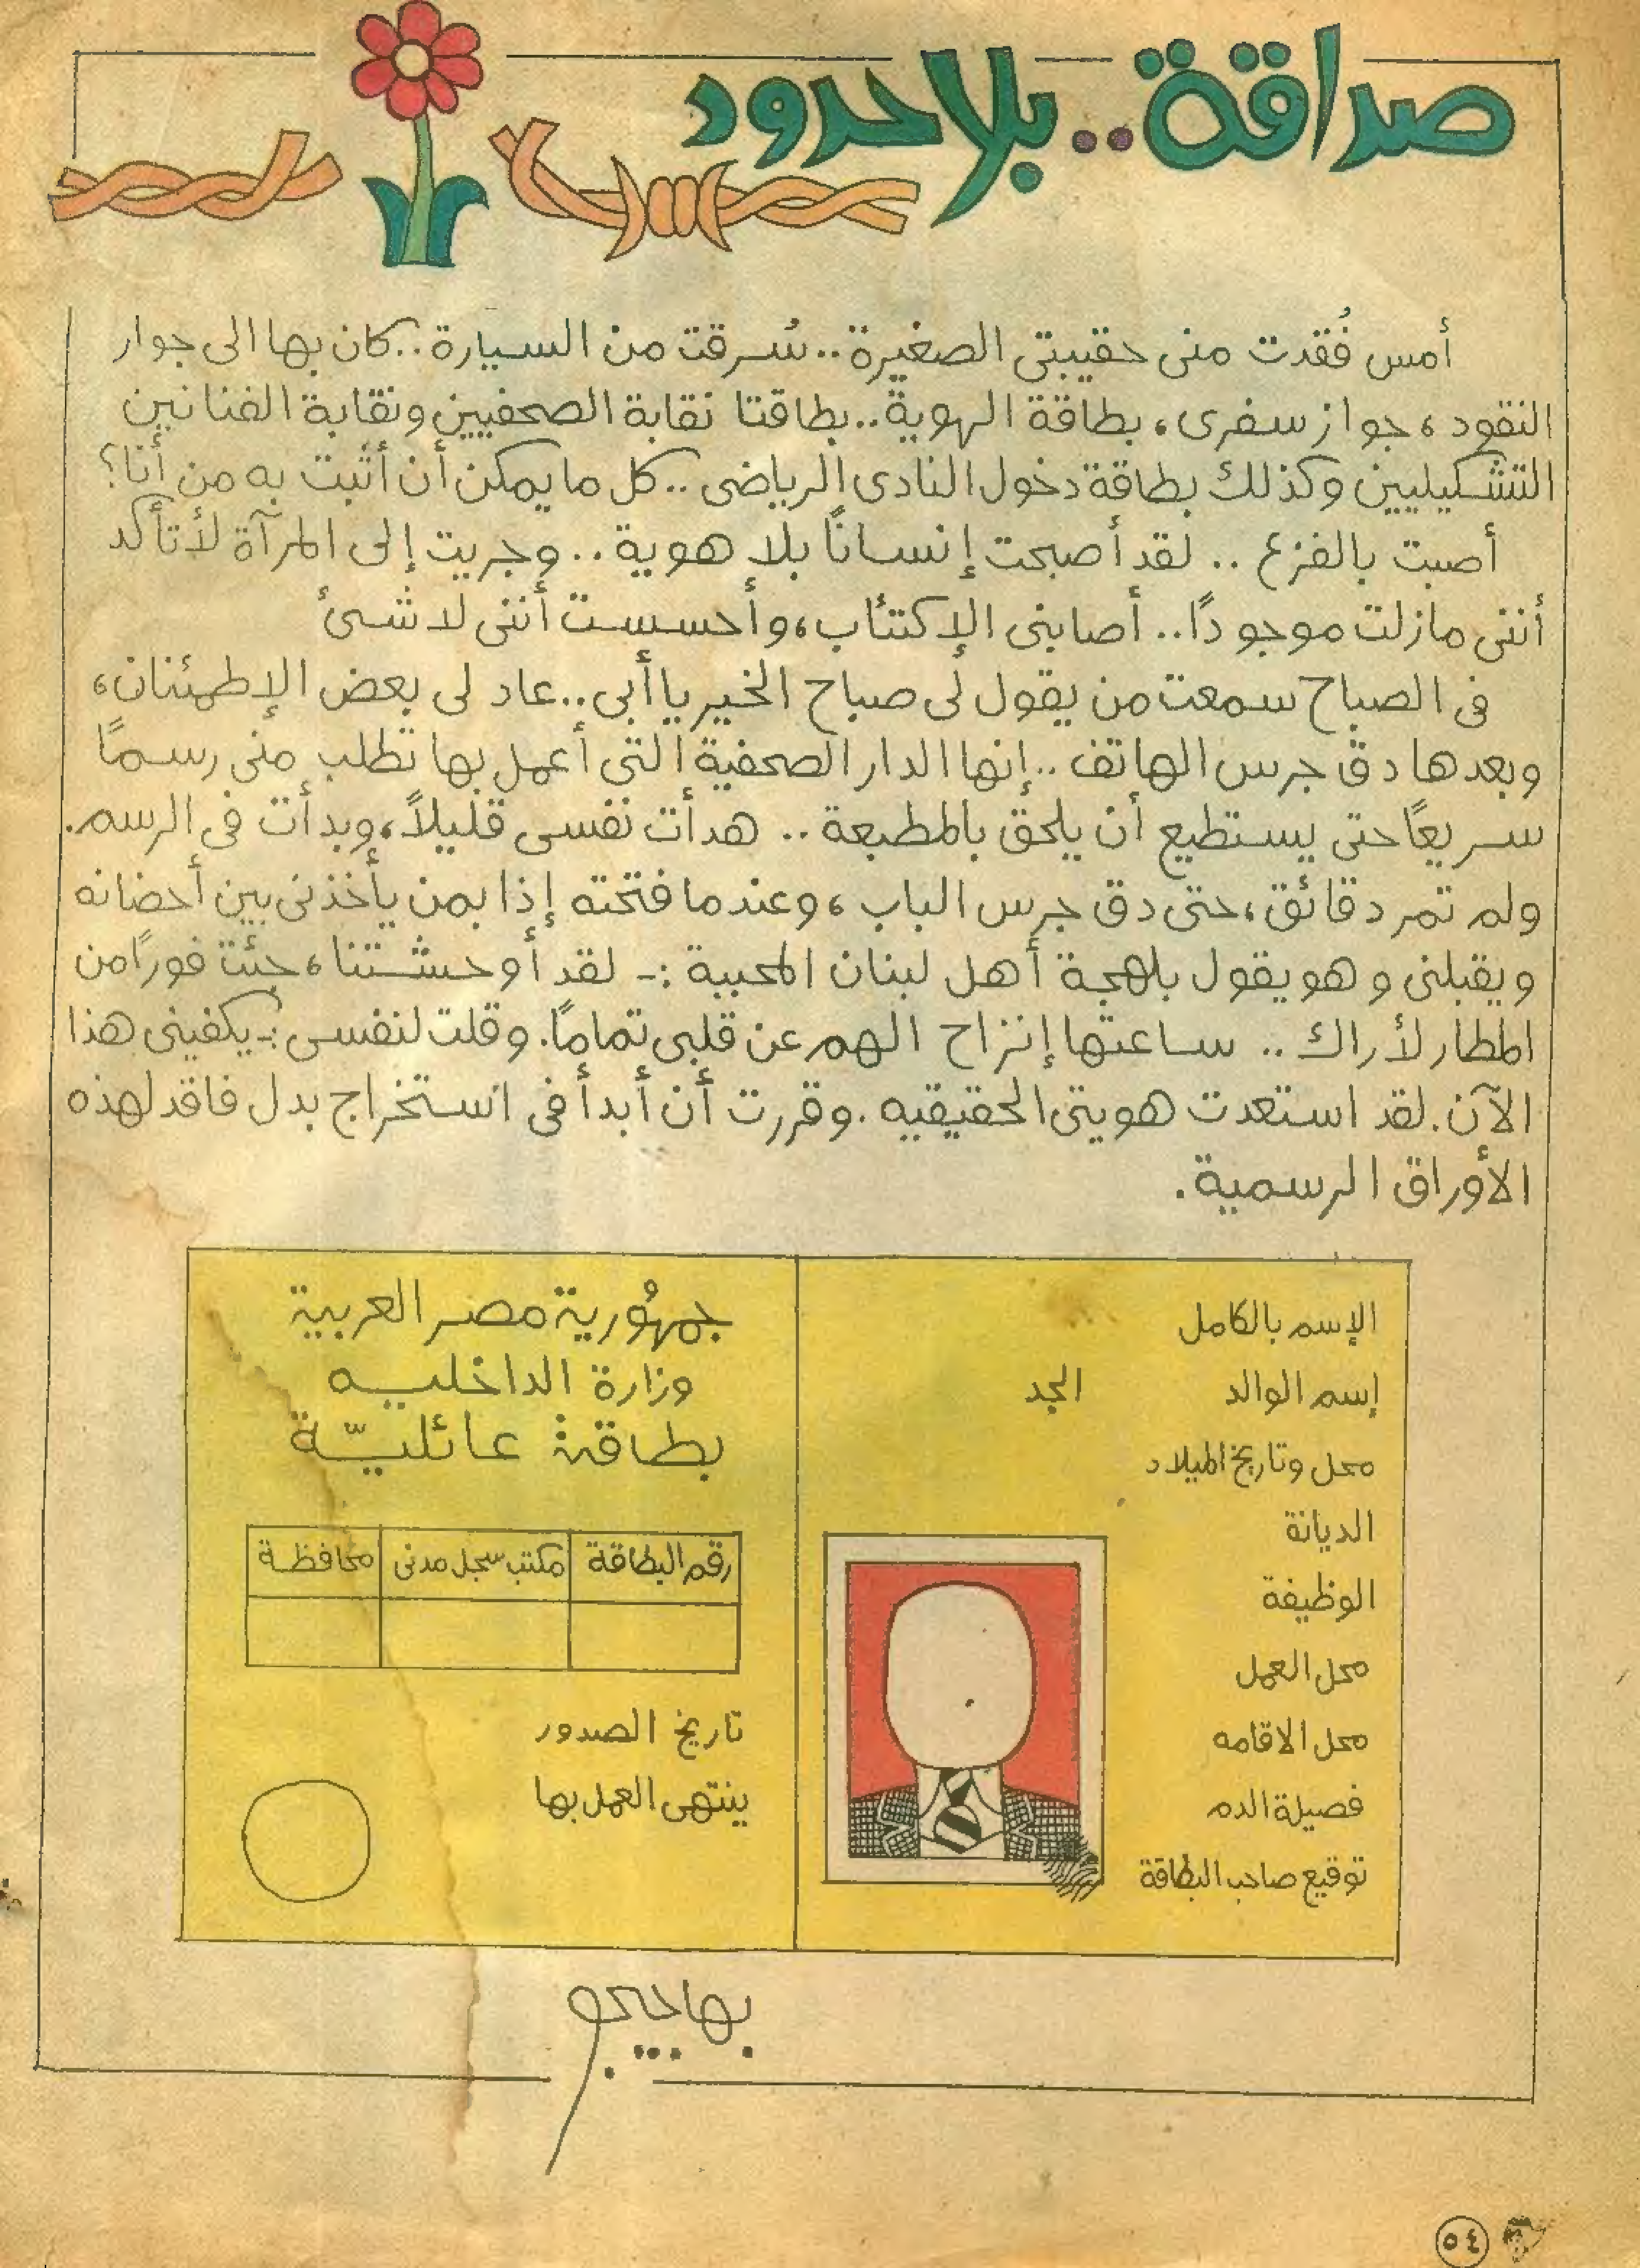 صداقة.. بلا حدود
أمس فُقدت منى حقيبتى الصغيرة.. سُرقت من السيارة.. كان بها الى جوار
النقود، جواز سفرى، بطاقة الهوية.. بطاقتا نقابة الصحفيين ونقابة الفنانين
التشكيليين وكذلك بطاقة دخول النادى الرياضى.. كل ما يمكن أن أثبت به من أنا؟
أصبت بالفزع .. لقد أصبحت إنسانًا بلا هوية.. وجريت إلى المرآة لأتأكد
أننى مازلت موجودًا.. أصابنى الإكتئاب، وأحسست أننى لا شئ
فى الصباح سمعت من يقول لى صباح الخير يا أبى.. عاد لى بعض الإطمئنان،
وبعدها دق جرس الهاتف.. إنها الدار الصحفية التى أعمل بها تطلب منى رسمًا
سريعًا حتى يستطيع أن يلحق بالمطبعة.. هدأت نفسى قليلاً، وبدأت فى الرسم.
ولم تمر دقائق، حتى دق جرس الباب، وعندما فتحته إذا بمن يأخذنى بين أحضانه
ويقبلنى وهو يقول بلهجة أهل لبنان المحببة :- لقد أوحشتنا، جئت فورًا من
المطار لأراك .. ساعتها إنزاح الهم عن قلبى تمامًا. وقلت لنفسى :- يكفينى هذا
الآن. لقد استعدت هويتى الحقيقيه. وقررت أن أبدأ فى استخراج بدل فاقد لهذه
الأوراق الرسمية.
الإسم بالكامل
إسم الوالد الجد
محل وتاريخ الميلاد
الديانة
الوظيفة
محل العمل
محل الاقامه
فصيلة الدم
توقيع صاحب البطاقة
جمهُورية مصر العربية
وزارة الداخليه
بطاقة عائليّة
رقم البطاقة مكتب سجل مدنى محافظة
تاريخ الصدور
ينتهى العمل بها
بهاجيجو
٥٤